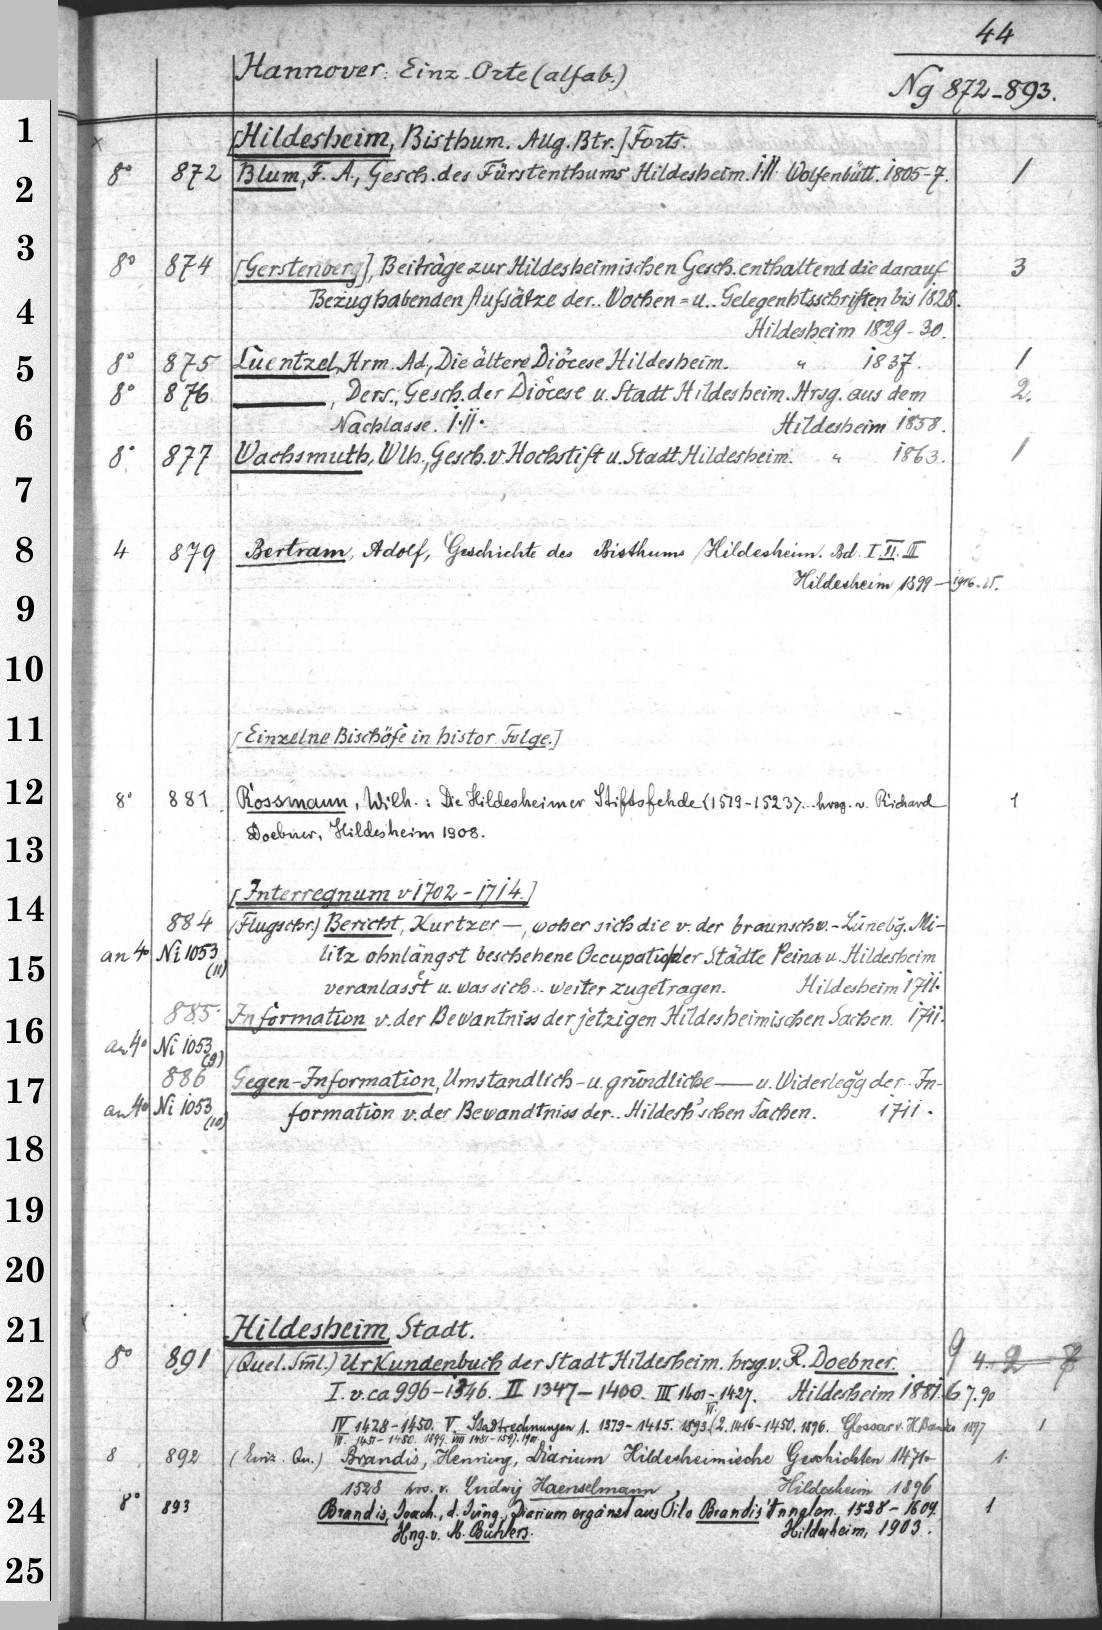 44
Hannover: Einz. Orte (alfab.)
Ng 872-893.
1
[Hildesheim, Bisthum. Allg. Btr.] Forts.
2
8° 872 Blum, F. A., Gesch. des Fürstenthums Hildesheim. I.II. Wolfenbütt. 1805-7. 1
3
8° 874 [Gerstenberg], Beiträge zur Hildesheimischen Gesch. enthaltend die darauf 3
4
Bezug habenden Aufsätze der.. Wochen= u.. Gelegenhtsschriften bis 1828.
Hildesheim 1829-30.
5
8° 875 Luentzel, Hrm. Ad., Die ältere Diöcese Hildesheim. " 1837. 1
8° 876 ———, Ders., Gesch. der Diöcese u. Stadt Hildesheim. Hrsg. aus dem 2.
6
Nachlasse. I.II. Hildesheim 1858.
8° 877 Wachsmuth, Wlh., Gesch. v. Hochstift u. Stadt Hildesheim. " 1863. 1
7
8
4 879 Bertram, Adolf, Geschichte des Bisthums Hildesheim. Bd. I II. III
Hildesheim 1899 — 1916. 25.
9
10
11
[Einzelne Bischöfe in histor. Folge.]
12
8° 881 Rossmann, Wilh.: Die Hildesheimer Stiftsfehde (1519-1523).. hrsg. v. Richard 1
Doebner, Hildesheim 1908.
13
14
[Interregnum v 1702-1714.]
884 (Flugschr.) Bericht, Kurtzer —, woher sich die v. der braunschw.-Lünebg. Mi-
15
an 4° Ni 1053 (11) litz ohnlängst beschehene Occupation der Städte Peina u. Hildesheim
veranlasst u. was sich.. weiter zugetragen. Hildesheim 1711.
16
885. Information v. der Bewantniss der jetzigen Hildesheimischen Sachen. 1711.
an 4° Ni 1053 (9)
17
886 Gegen-Information, Umstandlich- u. gründliche —— u. Widerlegg der.. In-
an 4° Ni 1053 (10) formation v. der Bewandtniss der.. Hildesh'schen Sachen. 1711.
18
19
20
21
Hildesheim, Stadt.
8° 891 (Quel. Sml.) Urkundenbuch der Stadt Hildesheim. hrzg. v. R. Doebner. 9 4. 2 8
22
I. v. ca 996-1346. II 1347-1400. III 1401-1427. Hildesheim 1881. 6 7. 90
IV 1428-1450. V. Stadtrechnungen 1. 1379-1415. 1893. VI. (2. 1416-1450. 1896. Glossar v. H. Brandes 1897 1
VII. 1451-1480. 1899. VIII 1481-1597. 1901.
23
8 892 (Einz. Qu.) Brandis, Henning, Diarium Hildesheimische Geschichten 1471- 1.
1528 hrs. v. Ludwig Haenselmann, Hildesheim 1896
24
8° 893 Brandis, Joach., d. Jüng., Diarium ergänzt aus Tilo Brandis' Annalen. 1528-1609. 1
Hrsg. v. M. Buhlers. Hildesheim, 1903.
25